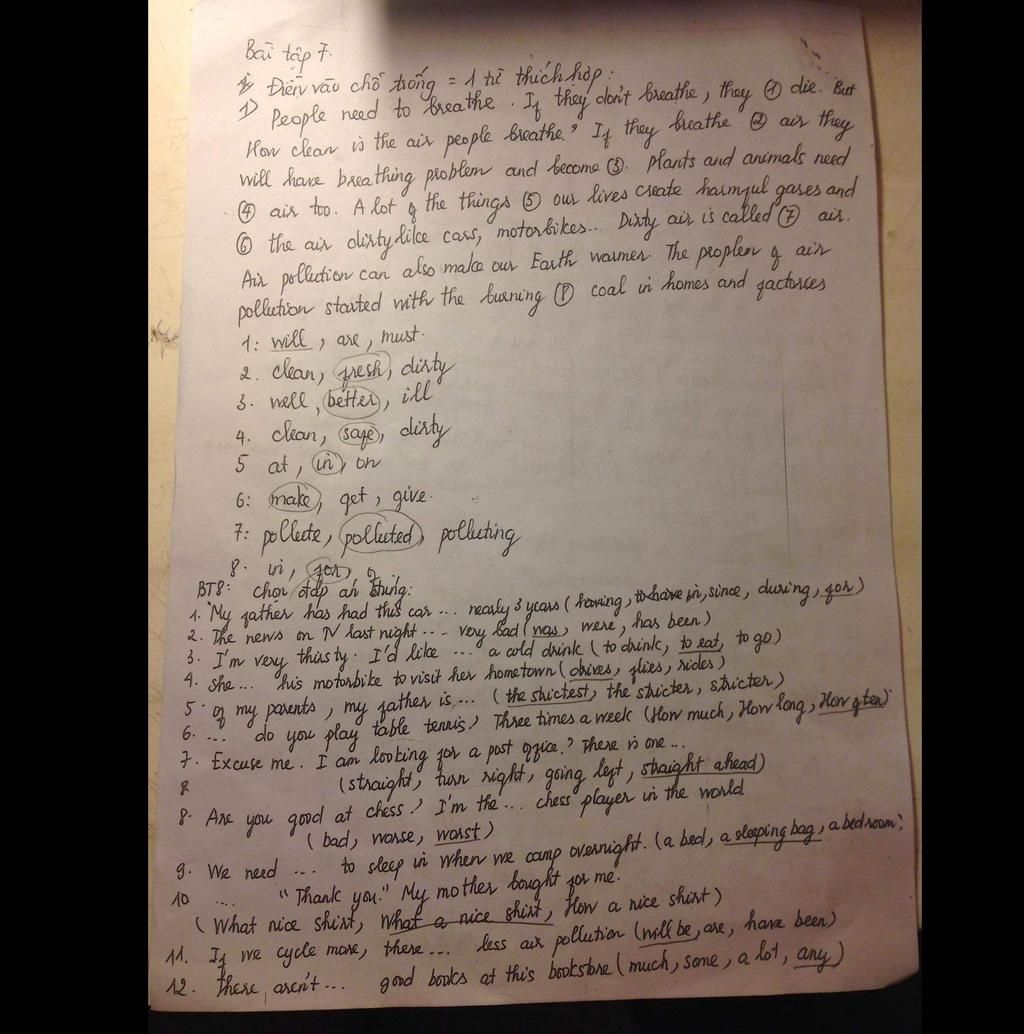 Bài tập 7.
Điền vào chỗ trống = 1 từ thích hợp:
1) People need to breathe. If they don't breathe, they ① die. But
How clean is the air people breathe? If they breathe ② air they
will have breathing problem and become ③. Plants and animals need
④ air too. A lot of the things ⑤ our lives create harmful gases and
⑥ the air dirty like cars, motorbikes... Dirty air is called ⑦ air.
Air pollution can also make our Earth warmer. The proplem of air
pollution started with the burning ⑧ coal in homes and factorces
1: will, are, must.
2. clean, fresh, dirty
3. well, better, ill
4. clean, safe, dirty
5 at, in, on
6: make, get, give.
7: pollute, polluted, polluting
8. in, for, of
BT8: chọn đáp án đúng:
1. My father has had this car ... nearly 3 years (having, to have in, since, during, for)
2. The news on TV last night ... very bad (was, were, has been)
3. I'm very thirsty. I'd like ... a cold drink (to drink, to eat, to go)
4. She ... his motorbike to visit her hometown (drives, flies, rides)
5. of my parents, my father is ... (the strictest, the stricter, stricter)
6. ... do you play table tennis? Three times a week (How much, How long, How often)
7. Excuse me. I am looking for a post office? There is one ...
8 (straight, turn right, going left, straight ahead)
8. Are you good at chess? I'm the ... chess player in the world.
(bad, worse, worst)
9. We need ... to sleep in when we camp overnight. (a bed, a sleeping bag, a bedroom)
10 .... "Thank you." My mother bought for me.
(What nice shirt, What a nice shirt, How a nice shirt)
11. If we cycle more, there ... less air pollution (will be, are, have been)
12. There aren't ... good books at this bookstore (much, some, a lot, any)